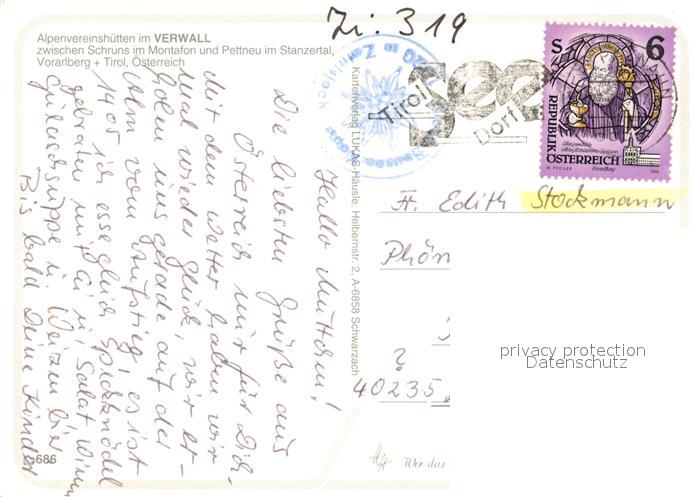 Alpenvereinshütten im VERWALL
zwischen Schruns im Montafon und Pettneu im Stanzertal,
Vorarlberg + Tirol, Österreich
Zi: 319
Hallo Muttchen!
Die liebsten Grüße aus
Österreich nur für Dich.
Mit dem Wetter haben wir
mal wieder Glück, wir er-
holen uns gerade auf der
Alm vom Aufstieg, es ist
14 05 ich esse Speckknödel
gebraten mit Ei u. Salat,
Gulaschsuppe u. Weizenbier
Bis bald Deine Kinder
686
Kartenverlag LUKAS Häusle, Helbernstr. 2, A-6858 Schwarzach
Tirol
See
Dorf
S 6
REPUBLIK
ÖSTERREICH
Fr. Edith Stockmann
Phön
?
40235
Wer das
privacy protection
Datenschutz